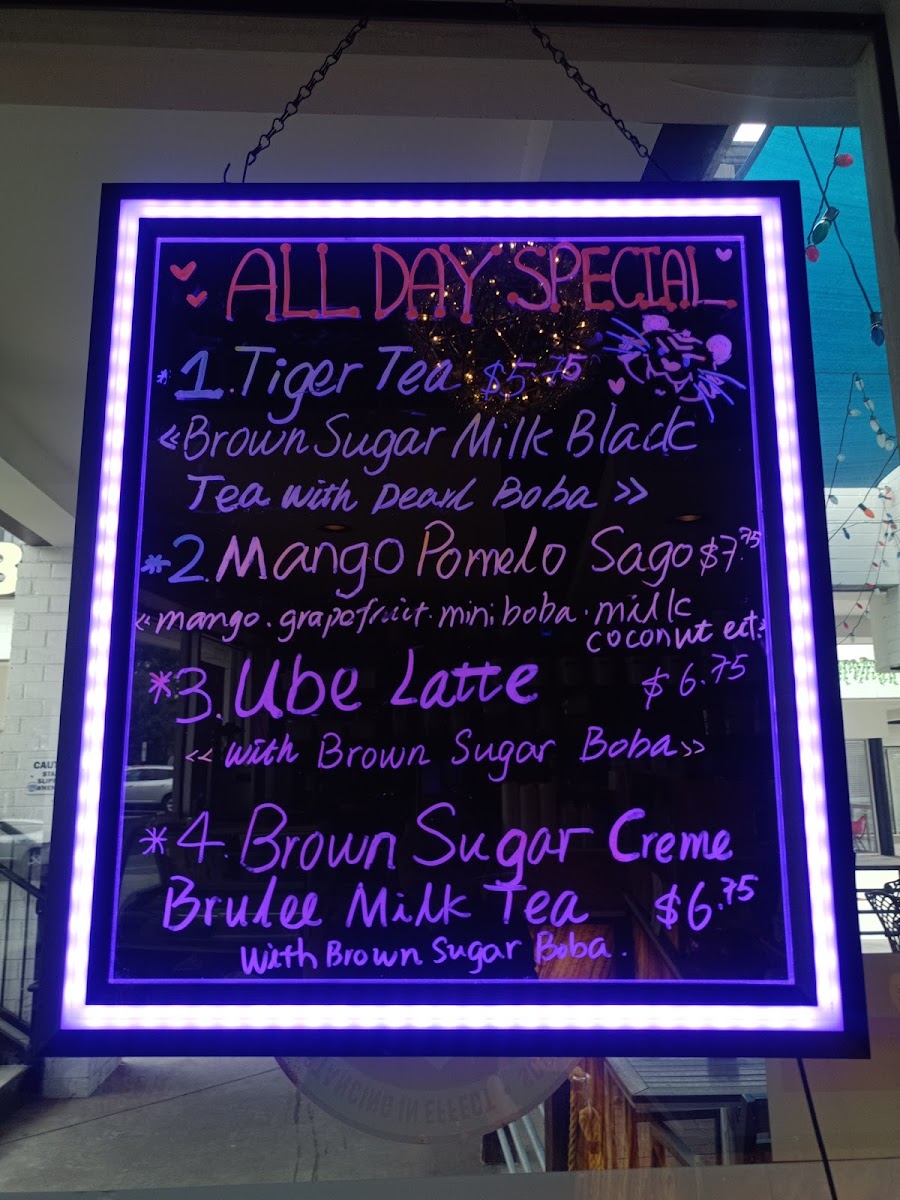 ALL DAY SPECIAL
*1. Tiger Tea $5.75
«Brown Sugar Milk Black
Tea with pearl Boba»
*2. Mango Pomelo Sago $7.75
«mango. grapefruit. mini boba. milk
coconut ect.»
*3. Ube Latte $6.75
<<with Brown Sugar Boba>>
*4. Brown Sugar Creme
Brulee Milk Tea $6.75
With Brown Sugar Boba.
IN EFFECT